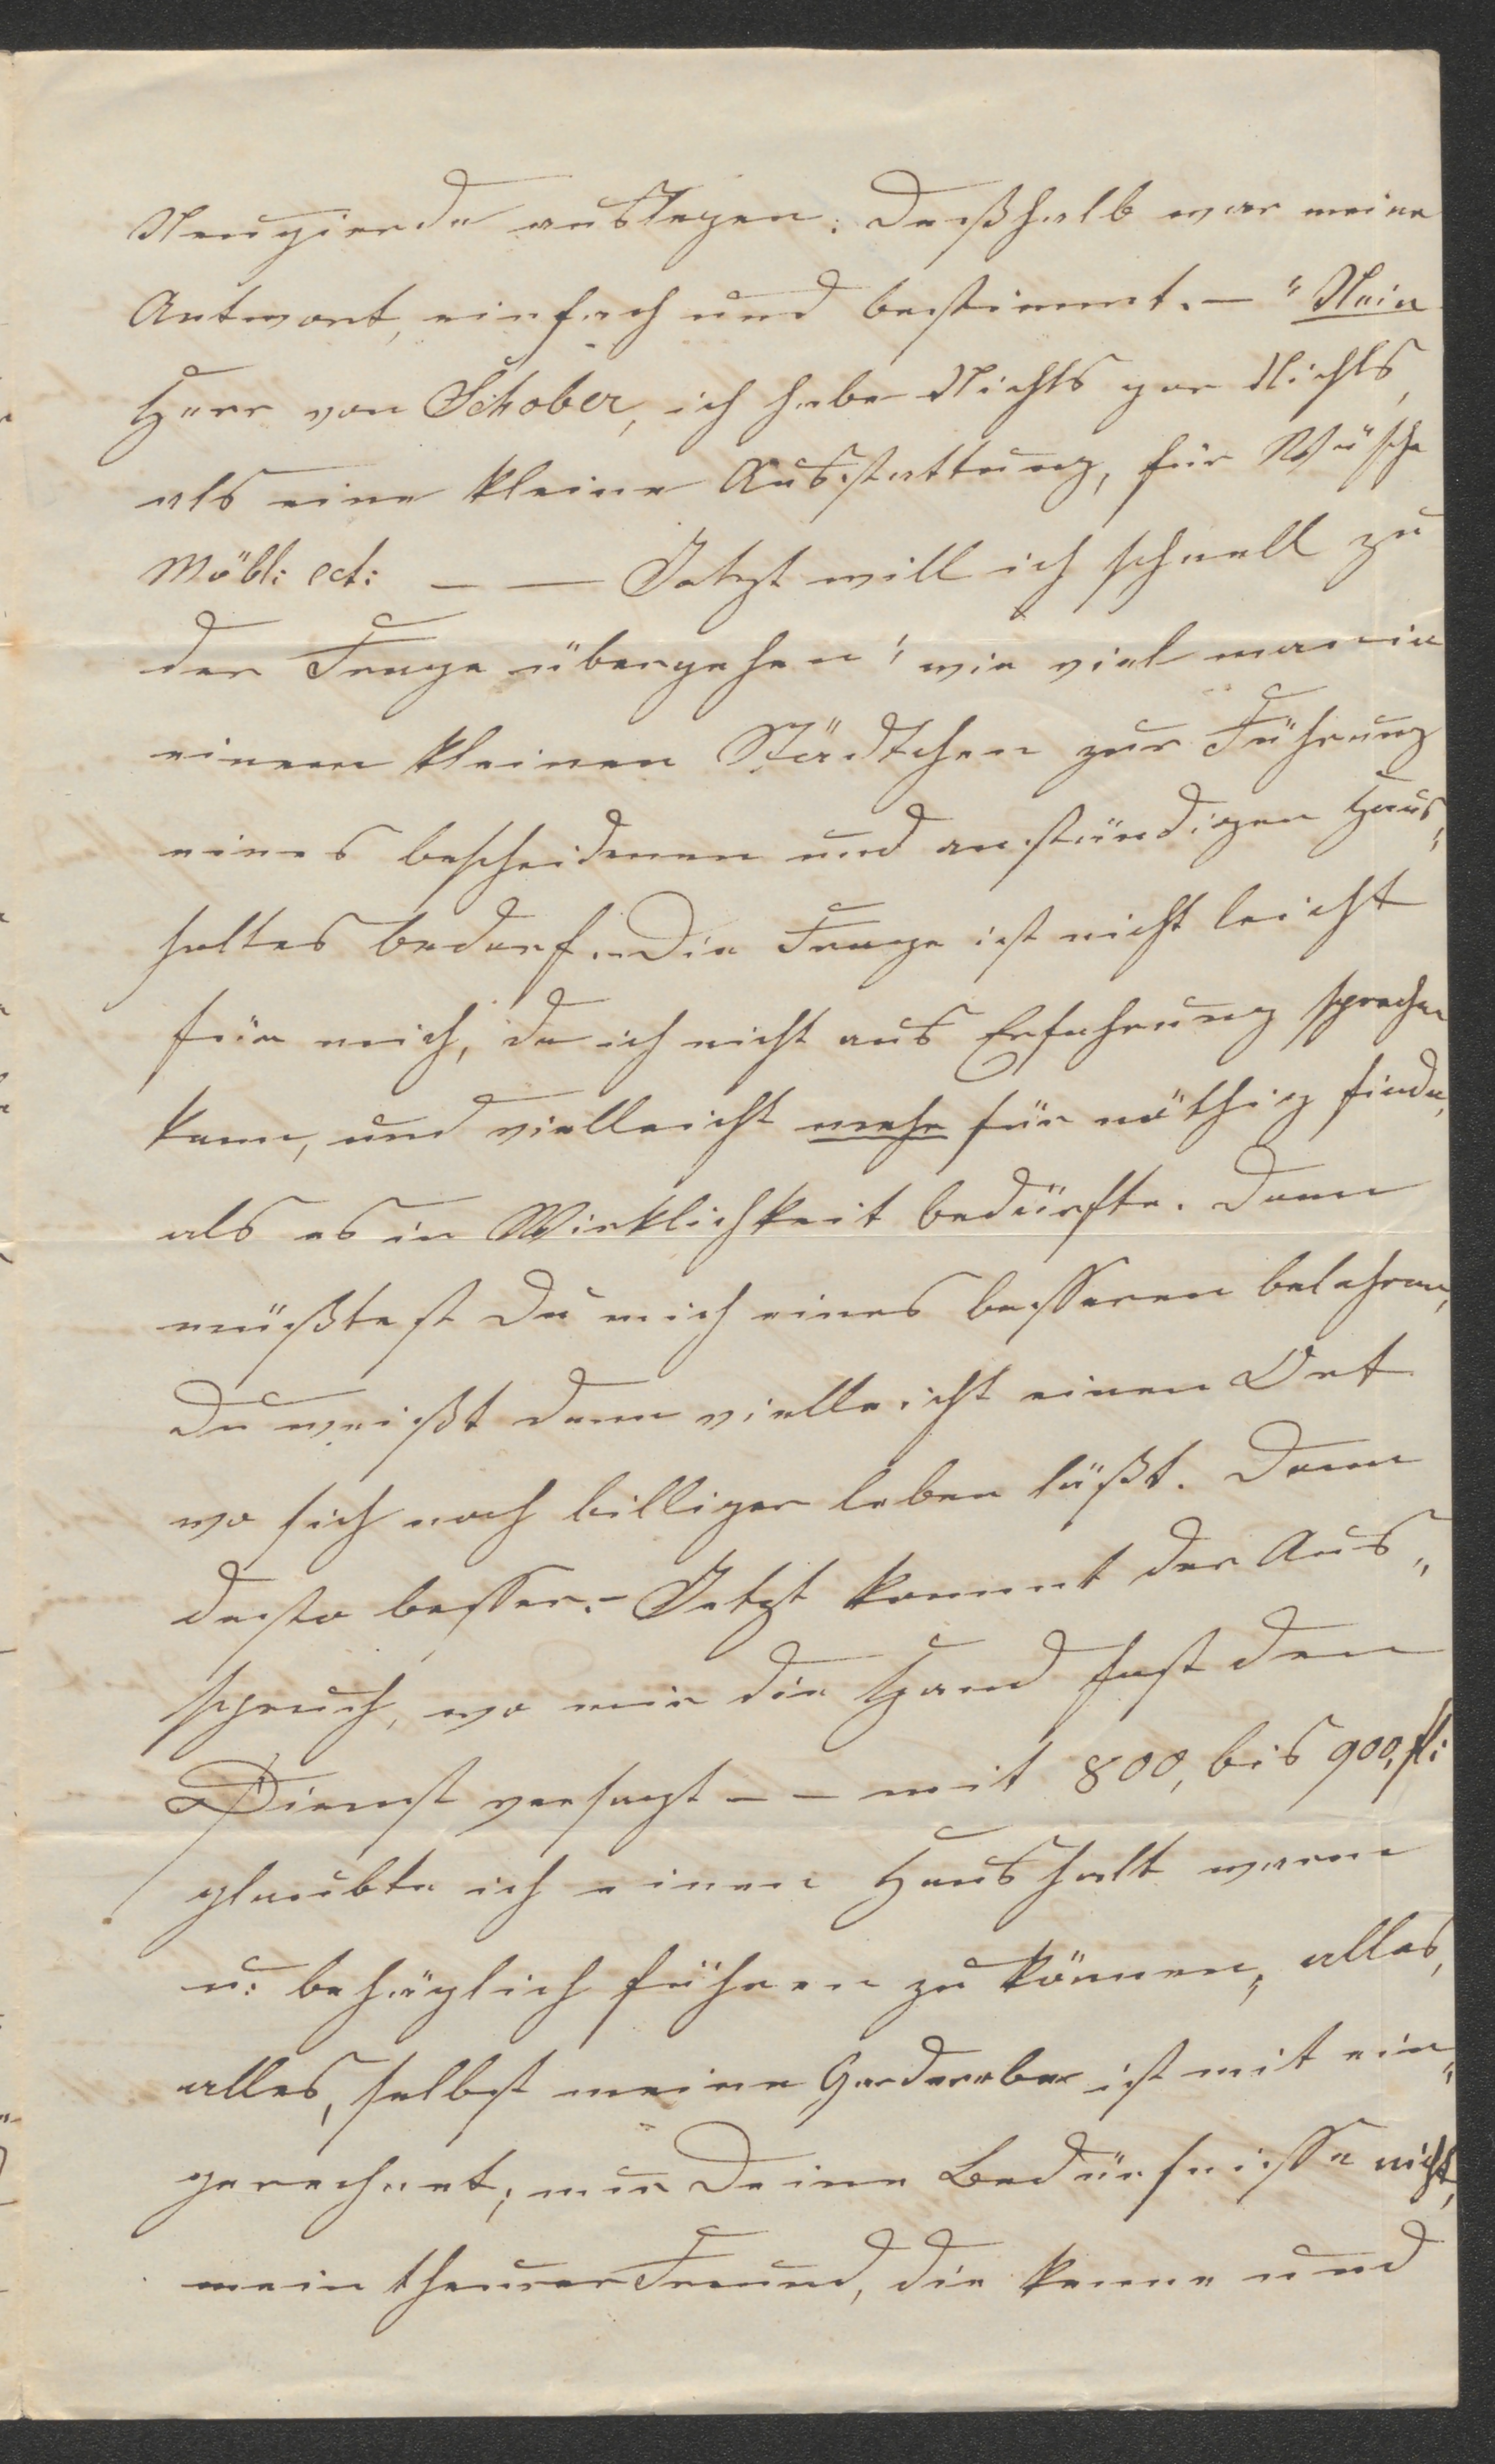 Neugierde auslegen. Deßhalb war meine
Antwort, einfach und bestimmt. — "Nein
Herr von Schober, ich habe Nichts gar Nichts,
als eine kleine Ausstattung, für Wäsche
Möbl: ect: — — Jetzt will ich schnell zu
der Frage übergehen! wie viel man in
einem kleinen Städtchen zur Führung
eines bescheidenen und anständigen Haus„
haltes bedarf. Die Frage ist nicht leicht
für mich, da ich nicht aus Erfahrung sprechen
kann, und vielleicht mehr für nöthig finde,
als es in Wirklichkeit bedürfte. Dann
müßtest Du mich eines besseren belehren,
Du weißt dann vielleicht einen Ort
wo sich noch billiger leben läßt. Dann
desto besser. – Jetzt kommt der Aus„
spruch, wo mir die Hand fast den
Dienst versagt – – mit 800, bis 900, fl:
glaubte ich einen Haushalt warm
u: behäglich führen zu können, alles,
alles, selbst meine Garderobe ist mit ein„
gerechnet, nur Deine Bedürfnisse nicht,
mein theurer Freund, die kenne und